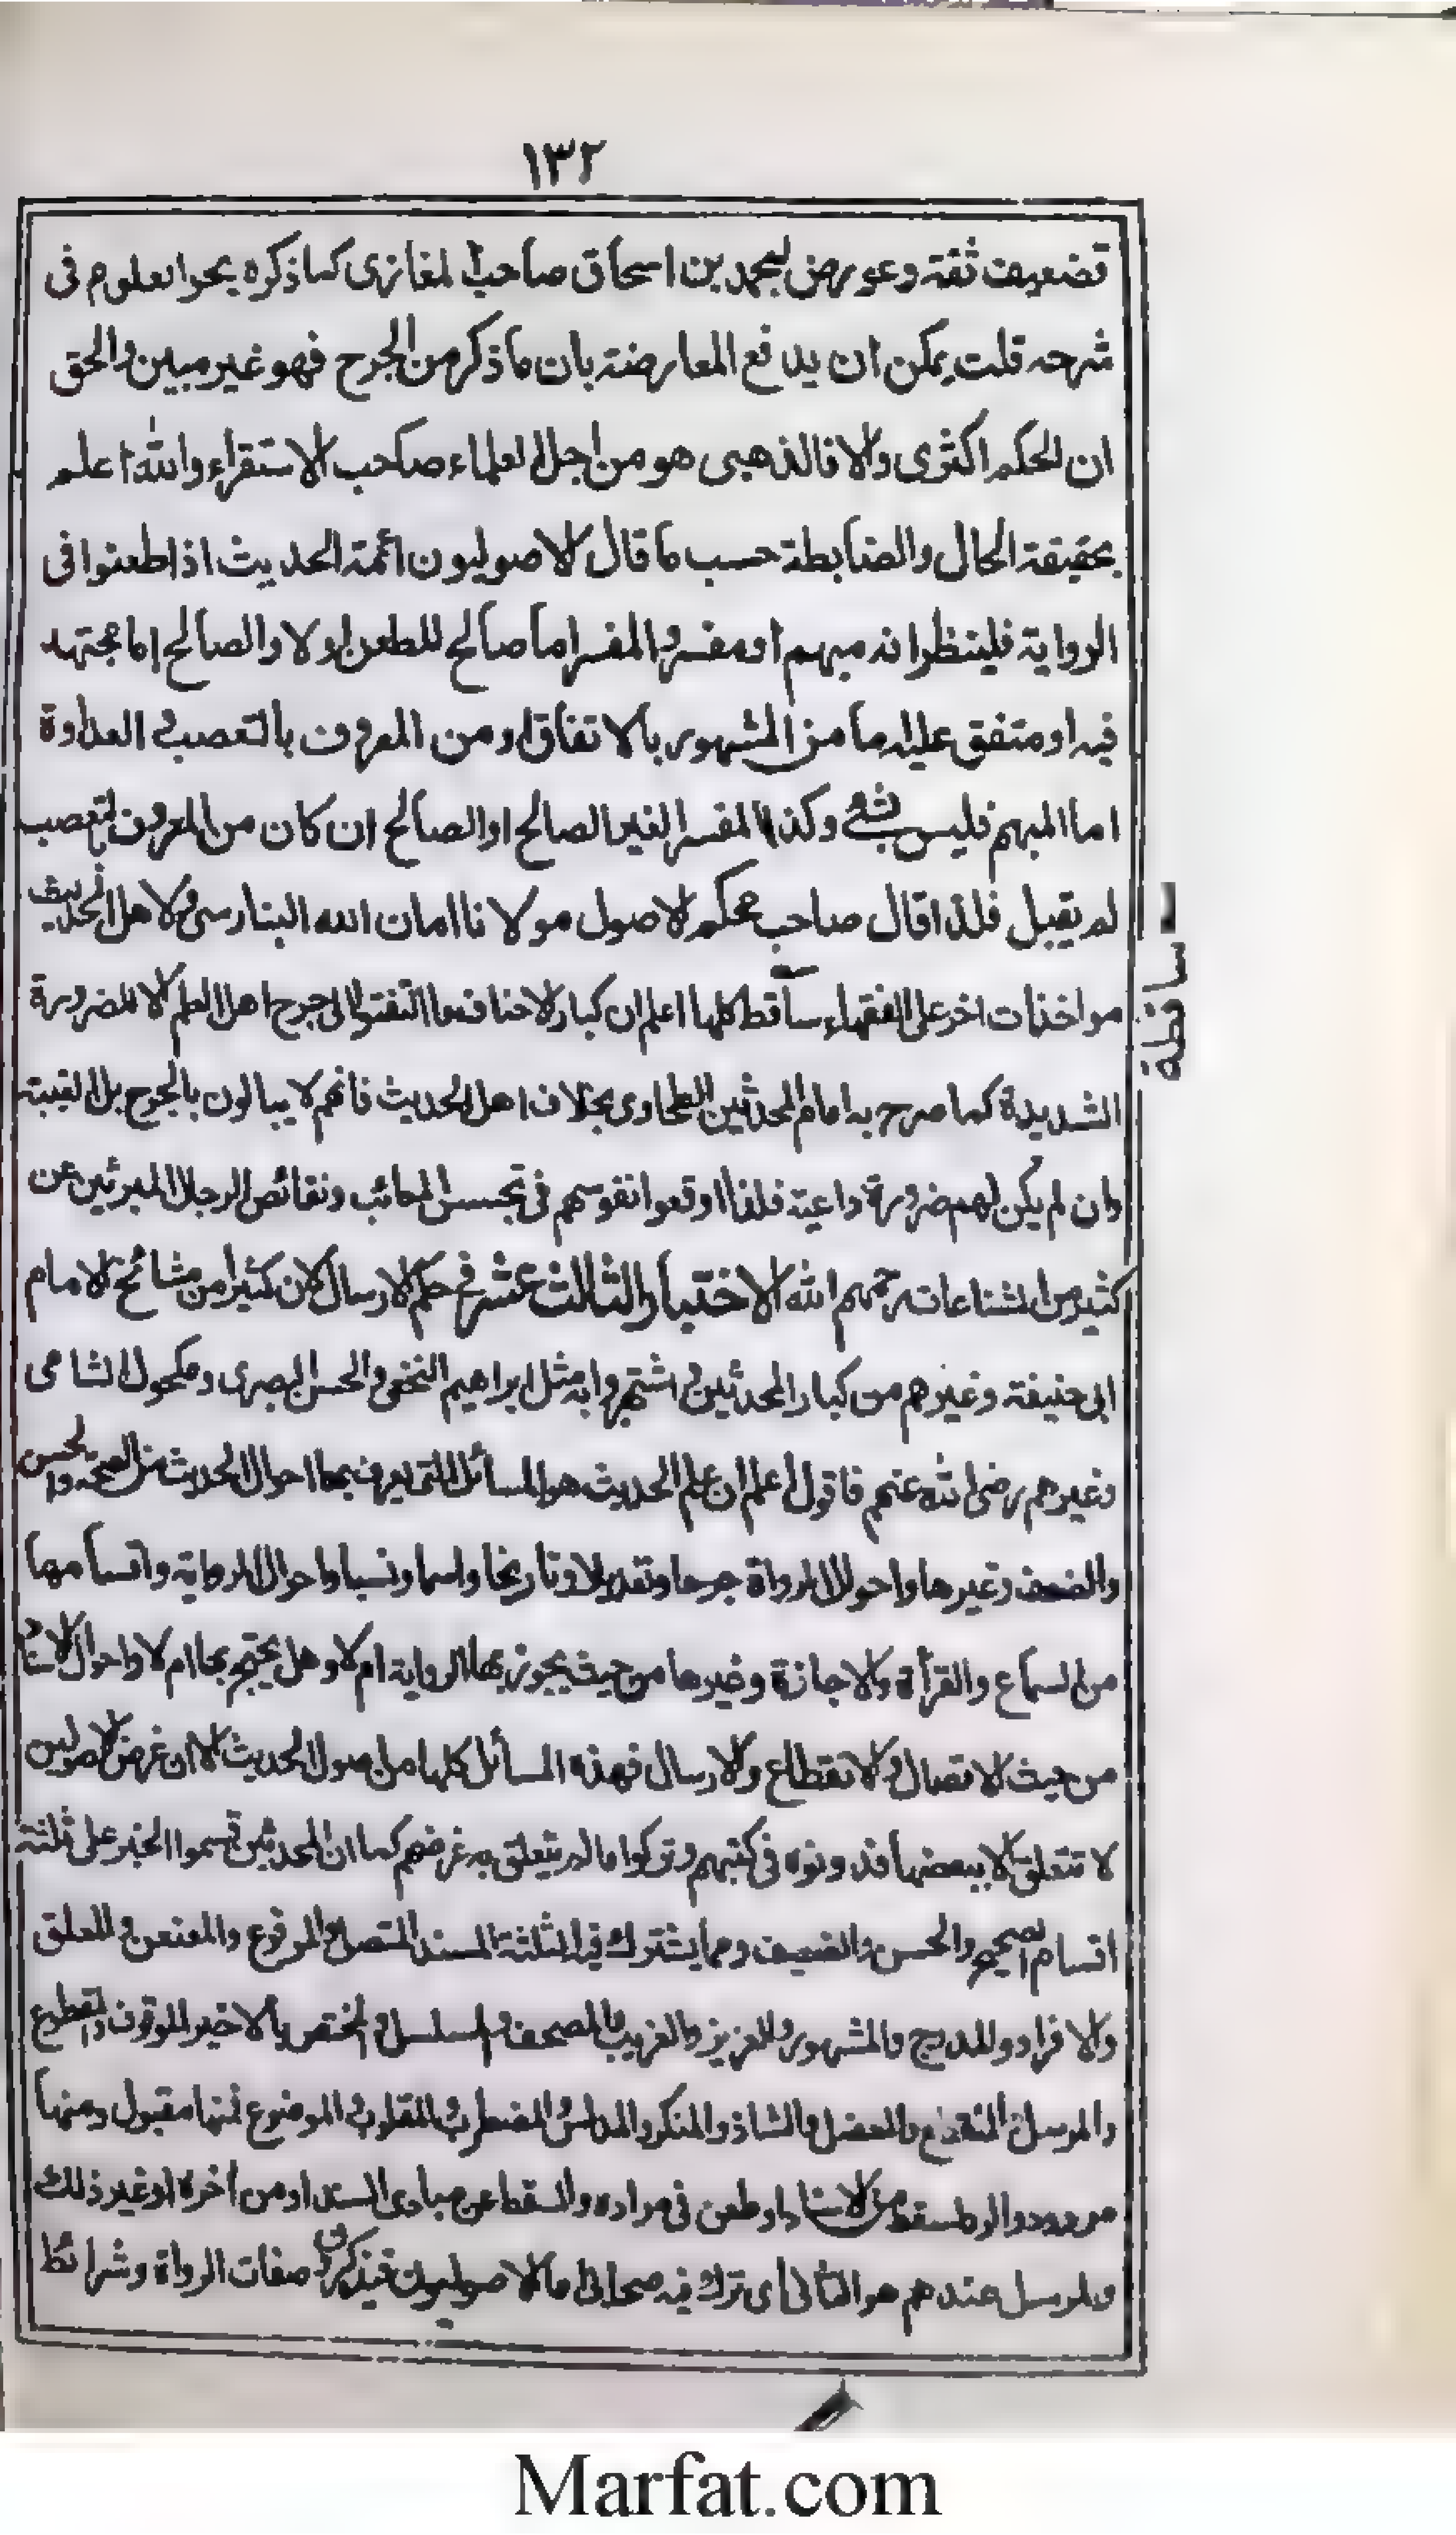 ١٣٢
تضعيف ثقة وعورض لمحمد بن اسحاق صاحب المغازى كما ذكره بحر العلوم فى
شرحه قلت يمكن ان يدافع المعارضة بان ما ذكر من الجرح فهو غير مبين والحق
ان الحكم اكثرى والا فالذهبى هو من اجل العلماء صاحب الاستقراء والله اعلم
بحقيقة الحال والضابطة حسب ما قال الاصوليون ائمة الحديث اذا طعنوا فى
الرواية فلينظر انه مبهم او مفسر والمفسر اما صالح للطعن او لا والصالح اما مجتهد
فيه او متفق عليه اما من المشهور بالاتفاق او من المعروف بالتعصب و العداوة
اما المبهم فليس بشئ وكذا المفسر الغير الصالح او الصالح ان كان من المعروف بالتعصب
لم يقبل فلذا قال صاحب محكم الاصول مولانا امان الله البنارسى ولاهل الحديث
مواخذات اخر على الفقهاء ساقط كلها اعلم ان كبار الاحناف ما التفتوا الى جرح اهل العلم الا للضرورة
ساقطة
الشديدة كما صرح به امام المحدثين الطحاوى بخلاف اهل الحديث فانهم لا يبالون بالجرح بل الغيبة
وان لم يكن لهم ضرورة داعية فلذا اوقعوا نفوسهم فى تجسس المعائب ونقائص الرجال المبرئين عن
كثير من الشناعات رحمهم الله الاختبار الثالث عشر فى حكم الارسال لان كثيرا من مشائخ الامام
ابى حنيفة وغيرهم من كبار المحدثين اشتهروا به مثل ابراهيم النخعى والحسن البصرى ومكحول الشامى
وغيرهم رضى الله عنهم فاقول اعلم ان علم الحديث هو المسائل التى يعرف بها احوال الحديث من الصحة والحسن
والضعف وغيرها واحوال الرواة جرحا وتعديلا وتاريخا واسما ونسبا واحوال الرواية واقسامها
من السماع والقرأة والاجازة وغيرها من حيث يجوز بها الرواية ام لا وهل يحتج بها ام لا واحوال الاسناد
من حيث الاتصال والانقطاع والارسال فهذه المسائل كلها من اصول الحديث الا ان غرض الاصوليين
لا تتعلق الا ببعضها فدونوه فى كتبهم وتركوا ما لم يتعلق به غرضهم كما ان المحدثين قسموا الخبر على ثلثة
اقسام الصحيح والحسن والضعيف ومما يشترك فيه الثلثة المسند المتصل والمرفوع والمعنعن والمعلق
والافراد والمدرج والمشهور والعزيز والغريب والمصحف والمسلسل والمختص بالاخير الموقوف والمقطوع
والمرسل والمنقطع والمعضل والشاذ والمنكر والمدلس والمضطرب والمقلوب والموضوع فمنها مقبول ومنها
مردود والرد لسقط من الاسناد او طعن فى مراده والسقط اعن مبادى السند او من اخره او غير ذلك
والمرسل عندهم هو الثانى اى ترك فيه صحابى اما الاصوليون فيذكرون صفات الرواة وشرائط
Marfat.com